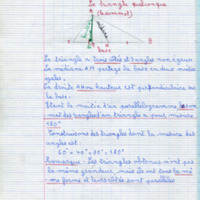 Le triangle quelconque
(sommet)
A
B
base
Le triangle a trois côtés et 3 angles
La médiane AM partage la base en deux parties
égales.
La droite AH ou hauteur est perpendiculaire sur
la base.
Étant la moitié d'un parallélogramme la som
me des angles d'un triangle a pour mesure
180°
Construisons des triangles dont la mesure des
angles est :
60° - 40° - 80° = 180°
Remarque : Les triangles obtenus n'ont pas
la même grandeur, mais ils ont tous la mê
me forme et leurs côtés sont parallèles